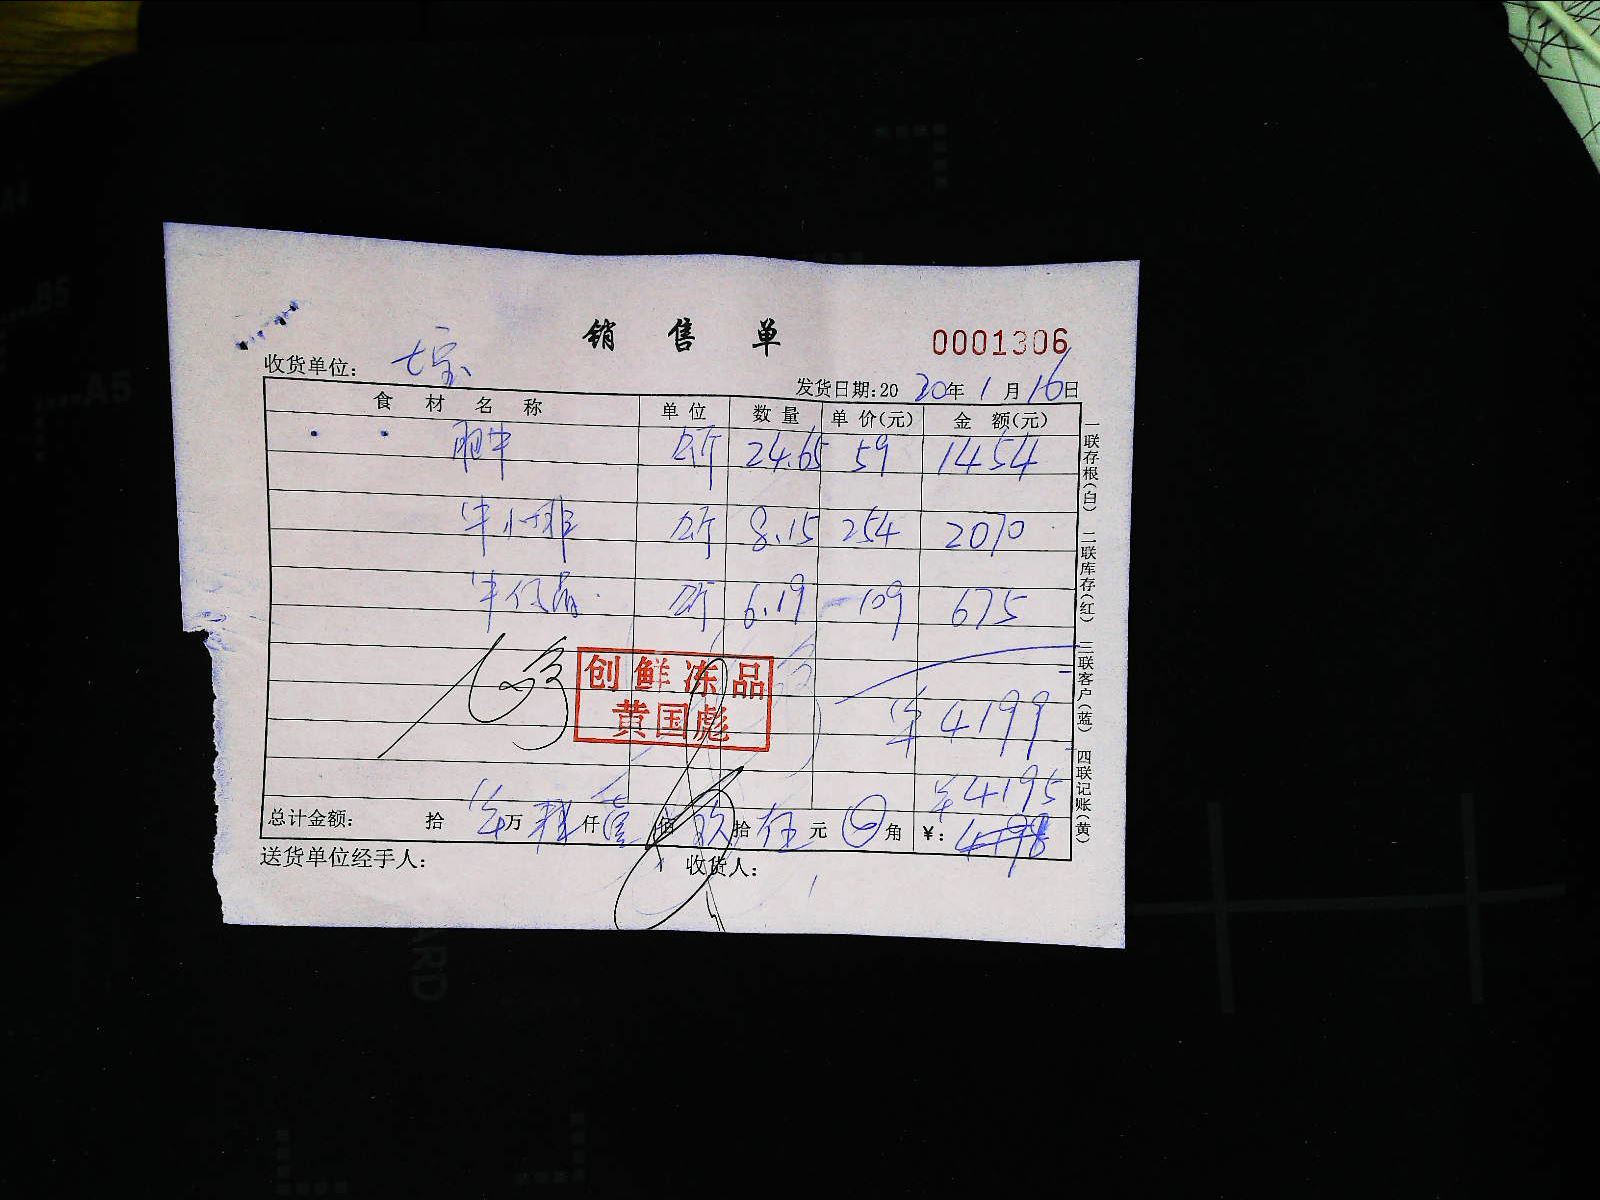 销 售 单
0001306
收货单位: 七宝
发货日期:2020年1月16日
食 材 名 称 单 位 数 量 单 价(元) 金 额(元)
肥牛 公斤 24.65 59 1454
牛小排 公斤 8.15 254 2070
牛仔骨 公斤 6.19 109 675
创鲜冻品
黄国彪
¥4199
¥4195
总计金额: 拾 万 肆仟壹佰玖拾伍元 角 ¥: 4198
送货单位经手人: 收货人:
一联存根(白) 二联库存(红) 三联客户(蓝) 四联记账(黄)
A5
B5